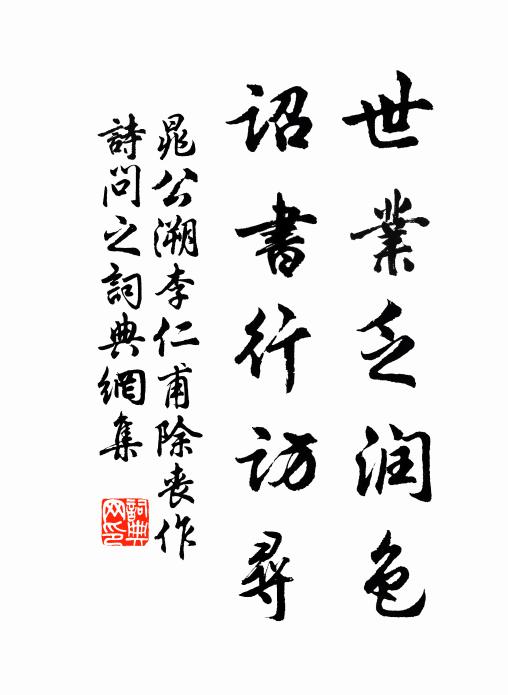 世業乏润色
詔書行訪尋
晁公溯李仁甫除丧作
詩問之詞典網集
詞典
网印